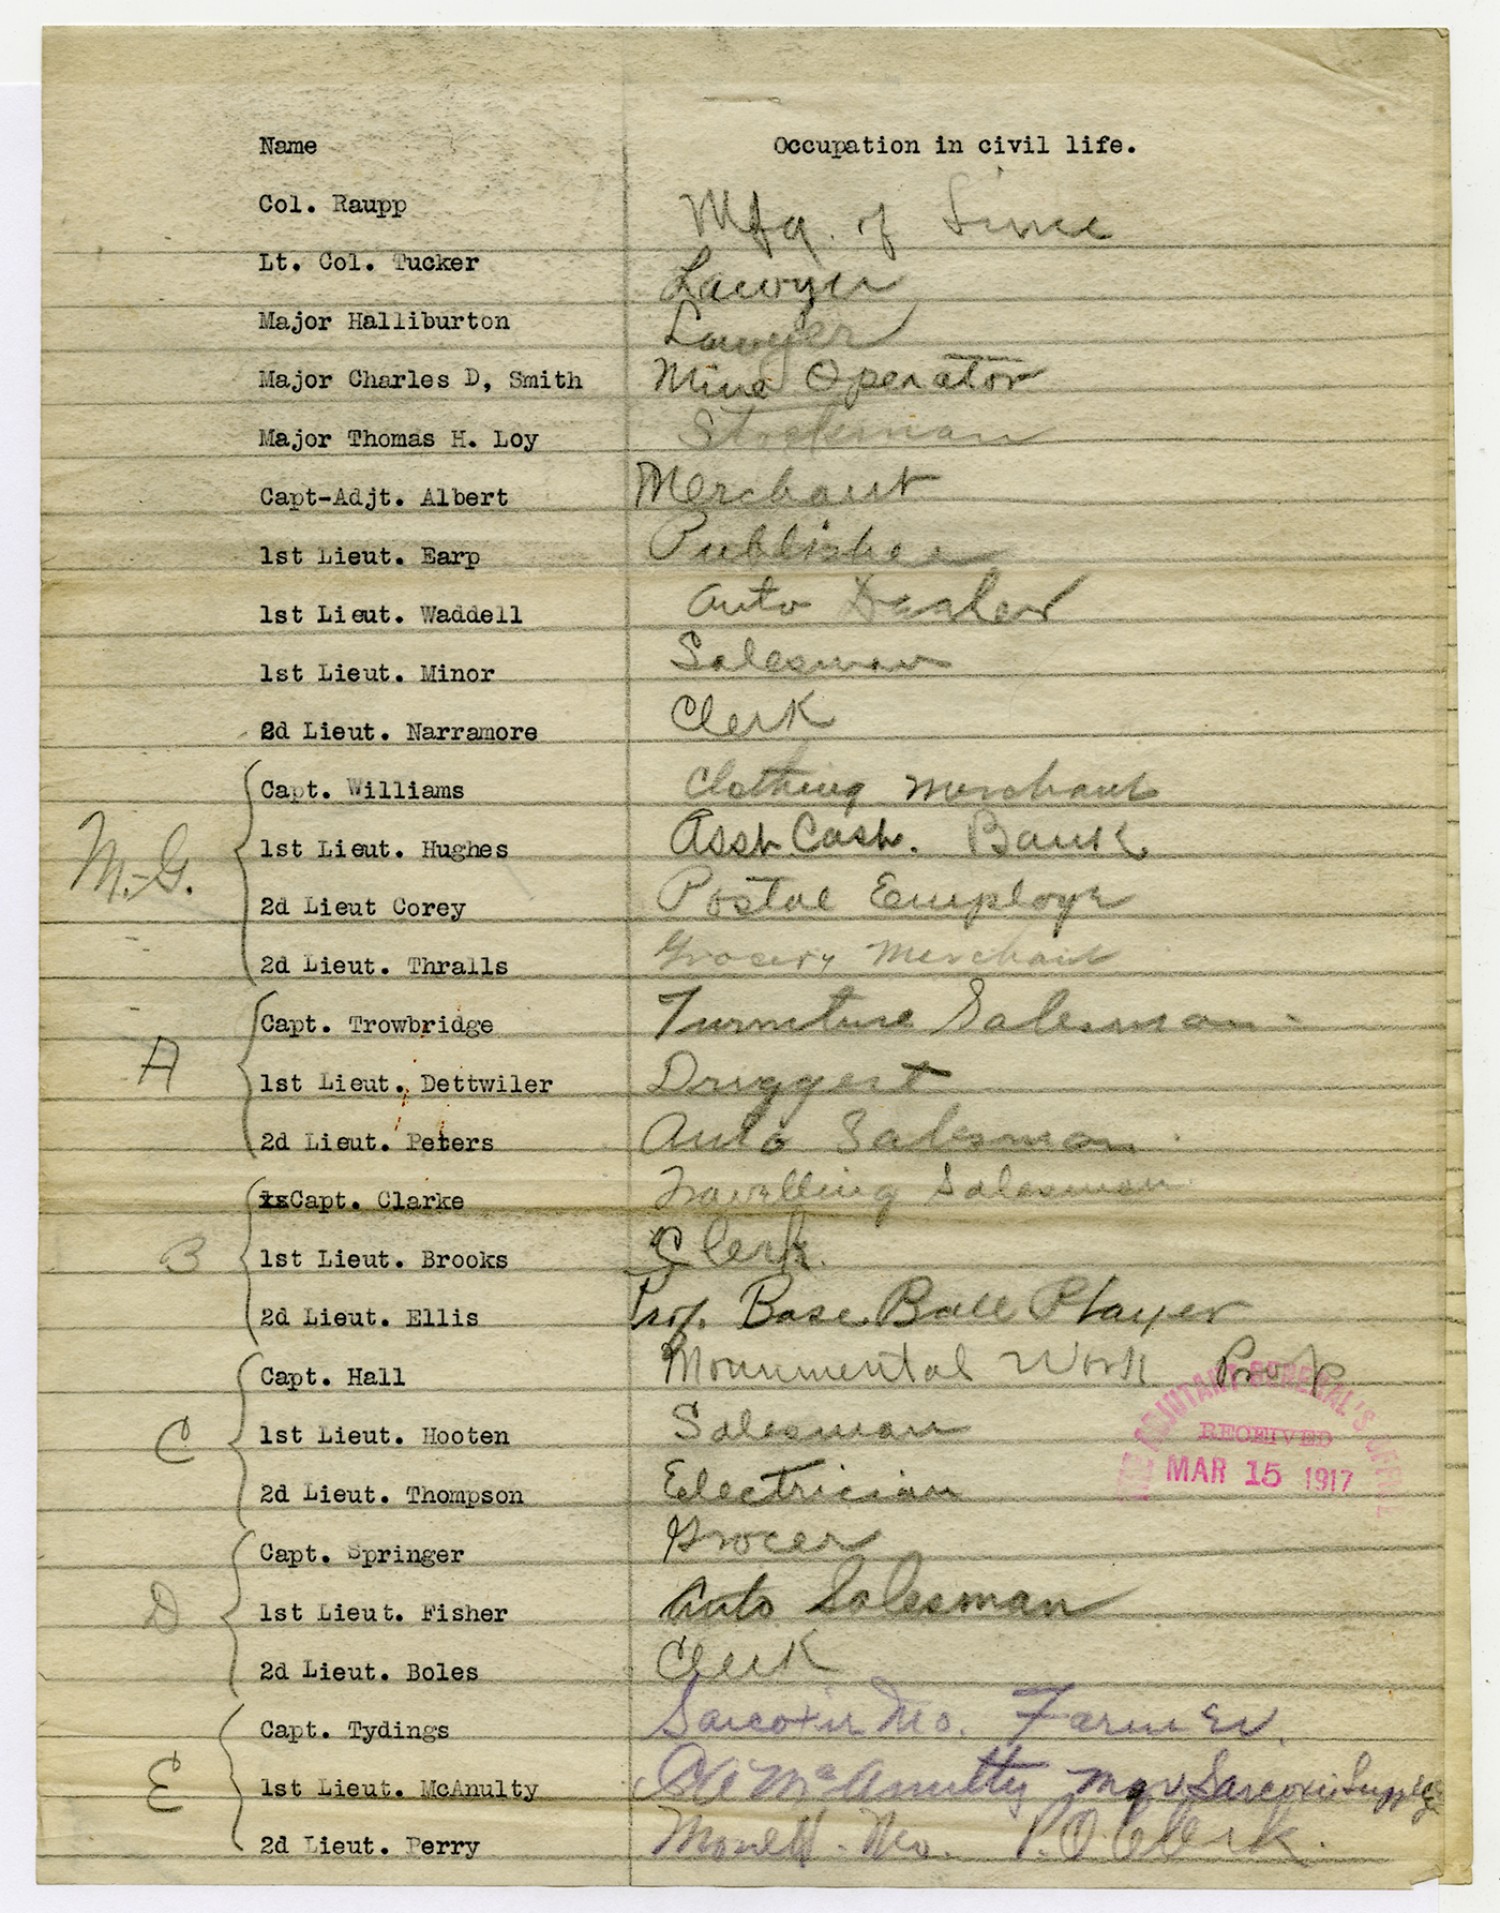 Name Occupation in civil life.
Col. Raupp Mfg. of Lime
Lt. Col. Tucker Lawyer
Major Halliburton Lawyer
Major Charles D, Smith Mine Operator
Major Thomas H. Loy Stockman
Capt-Adjt. Albert Merchant
1st Lieut. Earp Publisher
1st Lieut. Waddell Auto Dealer
1st Lieut. Minor Salesman
2d Lieut. Narramore Clerk
Capt. Williams Clothing Merchant
M.G. 1st Lieut. Hughes Asst. Cash. Bank
2d Lieut Corey Postal Employe
2d Lieut. Thralls Grocery Merchant
Capt. Trowbridge Furniture Salesman
A 1st Lieut. Dettwiler Druggest
2d Lieut. Peters Auto Salesman.
Capt. Clarke Travelling Salesman
B 1st Lieut. Brooks Clerk.
2d Lieut. Ellis Prof. Base Ball Player
Capt. Hall Monumental Work Prop
C 1st Lieut. Hooten Salesman
2d Lieut. Thompson Electrician
THE ADJUTANT GENERAL'S OFFICE
RECEIVED
MAR 15 1917
Capt. Springer Grocer
D 1st Lieut. Fisher Auto Salesman
2d Lieut. Boles Clerk
Capt. Tydings Sarcoxie Mo. Farmer.
E 1st Lieut. McAnulty McAnulty Mgr Sarcoxie Supply
2d Lieut. Perry Monett - Mo. P.O. Clerk.